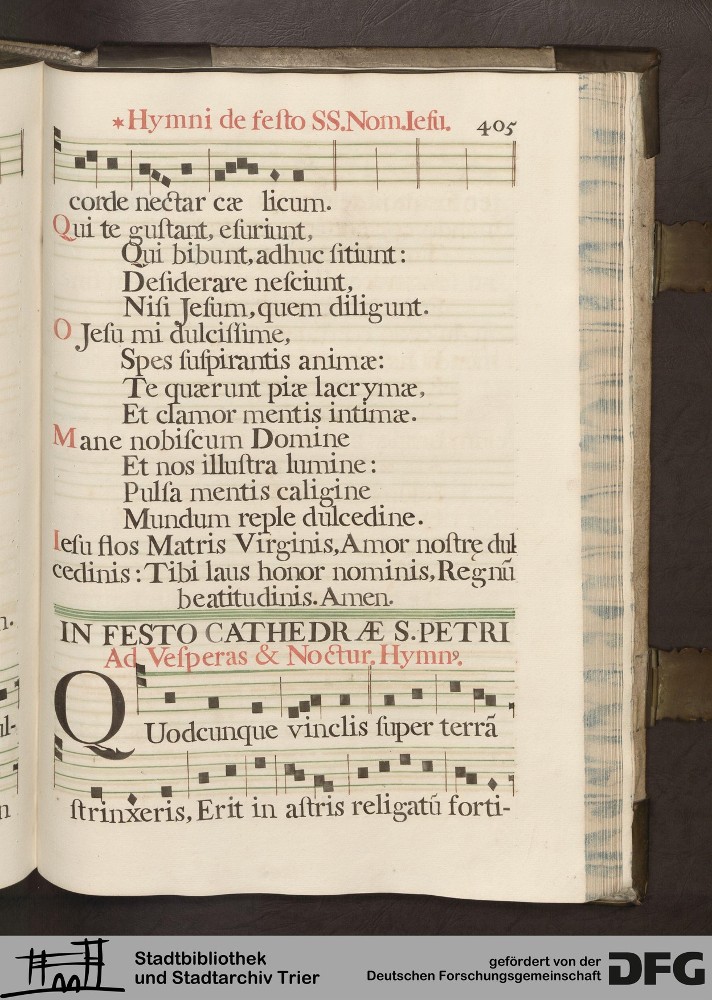 *Hymni de feſto SS.Nom.Ieſu. 405
corde nectar cæ licum.
Qui te guſtant, eſuriunt,
Qui bibunt,adhuc ſitiunt:
Deſiderare neſciunt,
Niſi Jeſum,quem diligunt.
O Jeſu mi dulciſſime,
Spes ſuſpirantis animæ:
Te quærunt piæ lacrymæ,
Et clamor mentis intimæ.
Mane nobiſcum Domine
Et nos illuſtra lumine:
Pulſa mentis caligine
Mundum reple dulcedine.
Ieſu flos Matris Virginis,Amor noſtrę dul
cedinis: Tibi laus honor nominis,Regnū
beatitudinis.Amen.
IN FESTO CATHEDRÆ S.PETRI
Ad Veſperas & Noctur. Hymnꝰ.
QUodcunque vinclis ſuper terrā
ſtrinxeris, Erit in aſtris religatū forti-
Stadtbibliothek
und Stadtarchiv Trier
gefördert von der
Deutschen Forschungsgemeinschaft
DFG